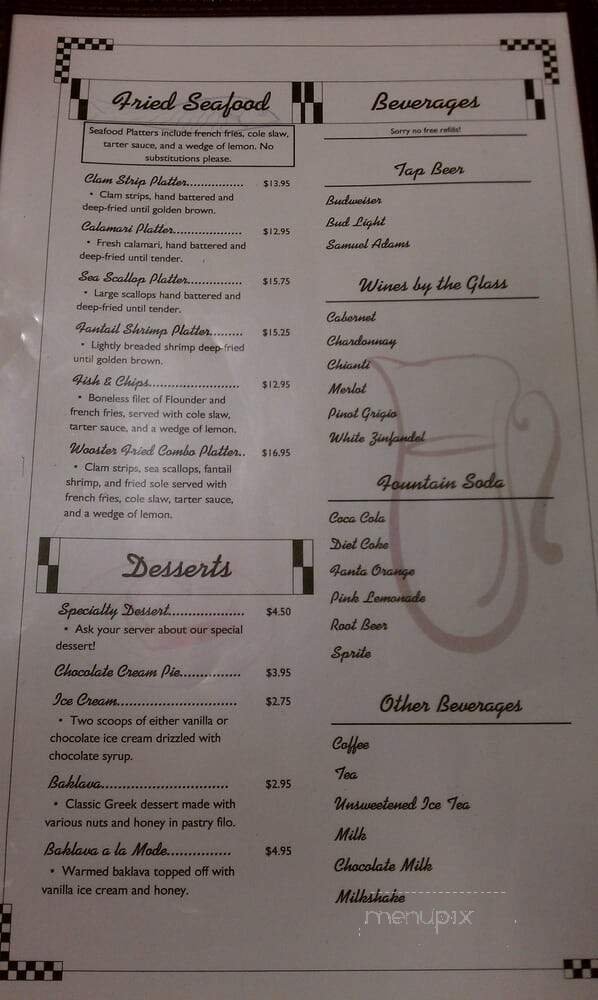 Fried Seafood
Seafood Platters include french fries, cole slaw,
tarter sauce, and a wedge of lemon. No
substitutions please.
Clam Strip Platter................ $13.95
• Clam strips, hand battered and
deep-fried until golden brown.
Calamari Platter................... $12.95
• Fresh calamari, hand battered and
deep-fried until tender.
Sea Scallop Platter................ $15.75
• Large scallops hand battered and
deep-fried until tender.
Fantail Shrimp Platter......... $15.25
• Lightly breaded shrimp deep-fried
until golden brown.
Fish & Chips......................... $12.95
• Boneless filet of Flounder and
french fries, served with cole slaw,
tarter sauce, and a wedge of lemon.
Wooster Fried Combo Platter.. $16.95
• Clam strips, sea scallops, fantail
shrimp, and fried sole served with
french fries, cole slaw, tarter sauce,
and a wedge of lemon.
Desserts
Specialty Dessert................... $4.50
• Ask your server about our special
dessert!
Chocolate Cream Pie............... $3.95
Ice Cream.............................. $2.75
• Two scoops of either vanilla or
chocolate ice cream drizzled with
chocolate syrup.
Baklava................................ $2.95
• Classic Greek dessert made with
various nuts and honey in pastry filo.
Baklava a la Mode................ $4.95
• Warmed baklava topped off with
vanilla ice cream and honey.
Beverages
Sorry no free refills!
Tap Beer
Budweiser
Bud Light
Samuel Adams
Wines by the Glass
Cabernet
Chardonnay
Chianti
Merlot
Pinot Grigio
White Zinfandel
Fountain Soda
Coca Cola
Diet Coke
Fanta Orange
Pink Lemonade
Root Beer
Sprite
Other Beverages
Coffee
Tea
Unsweetened Ice Tea
Milk
Chocolate Milk
Milkshake
menupix